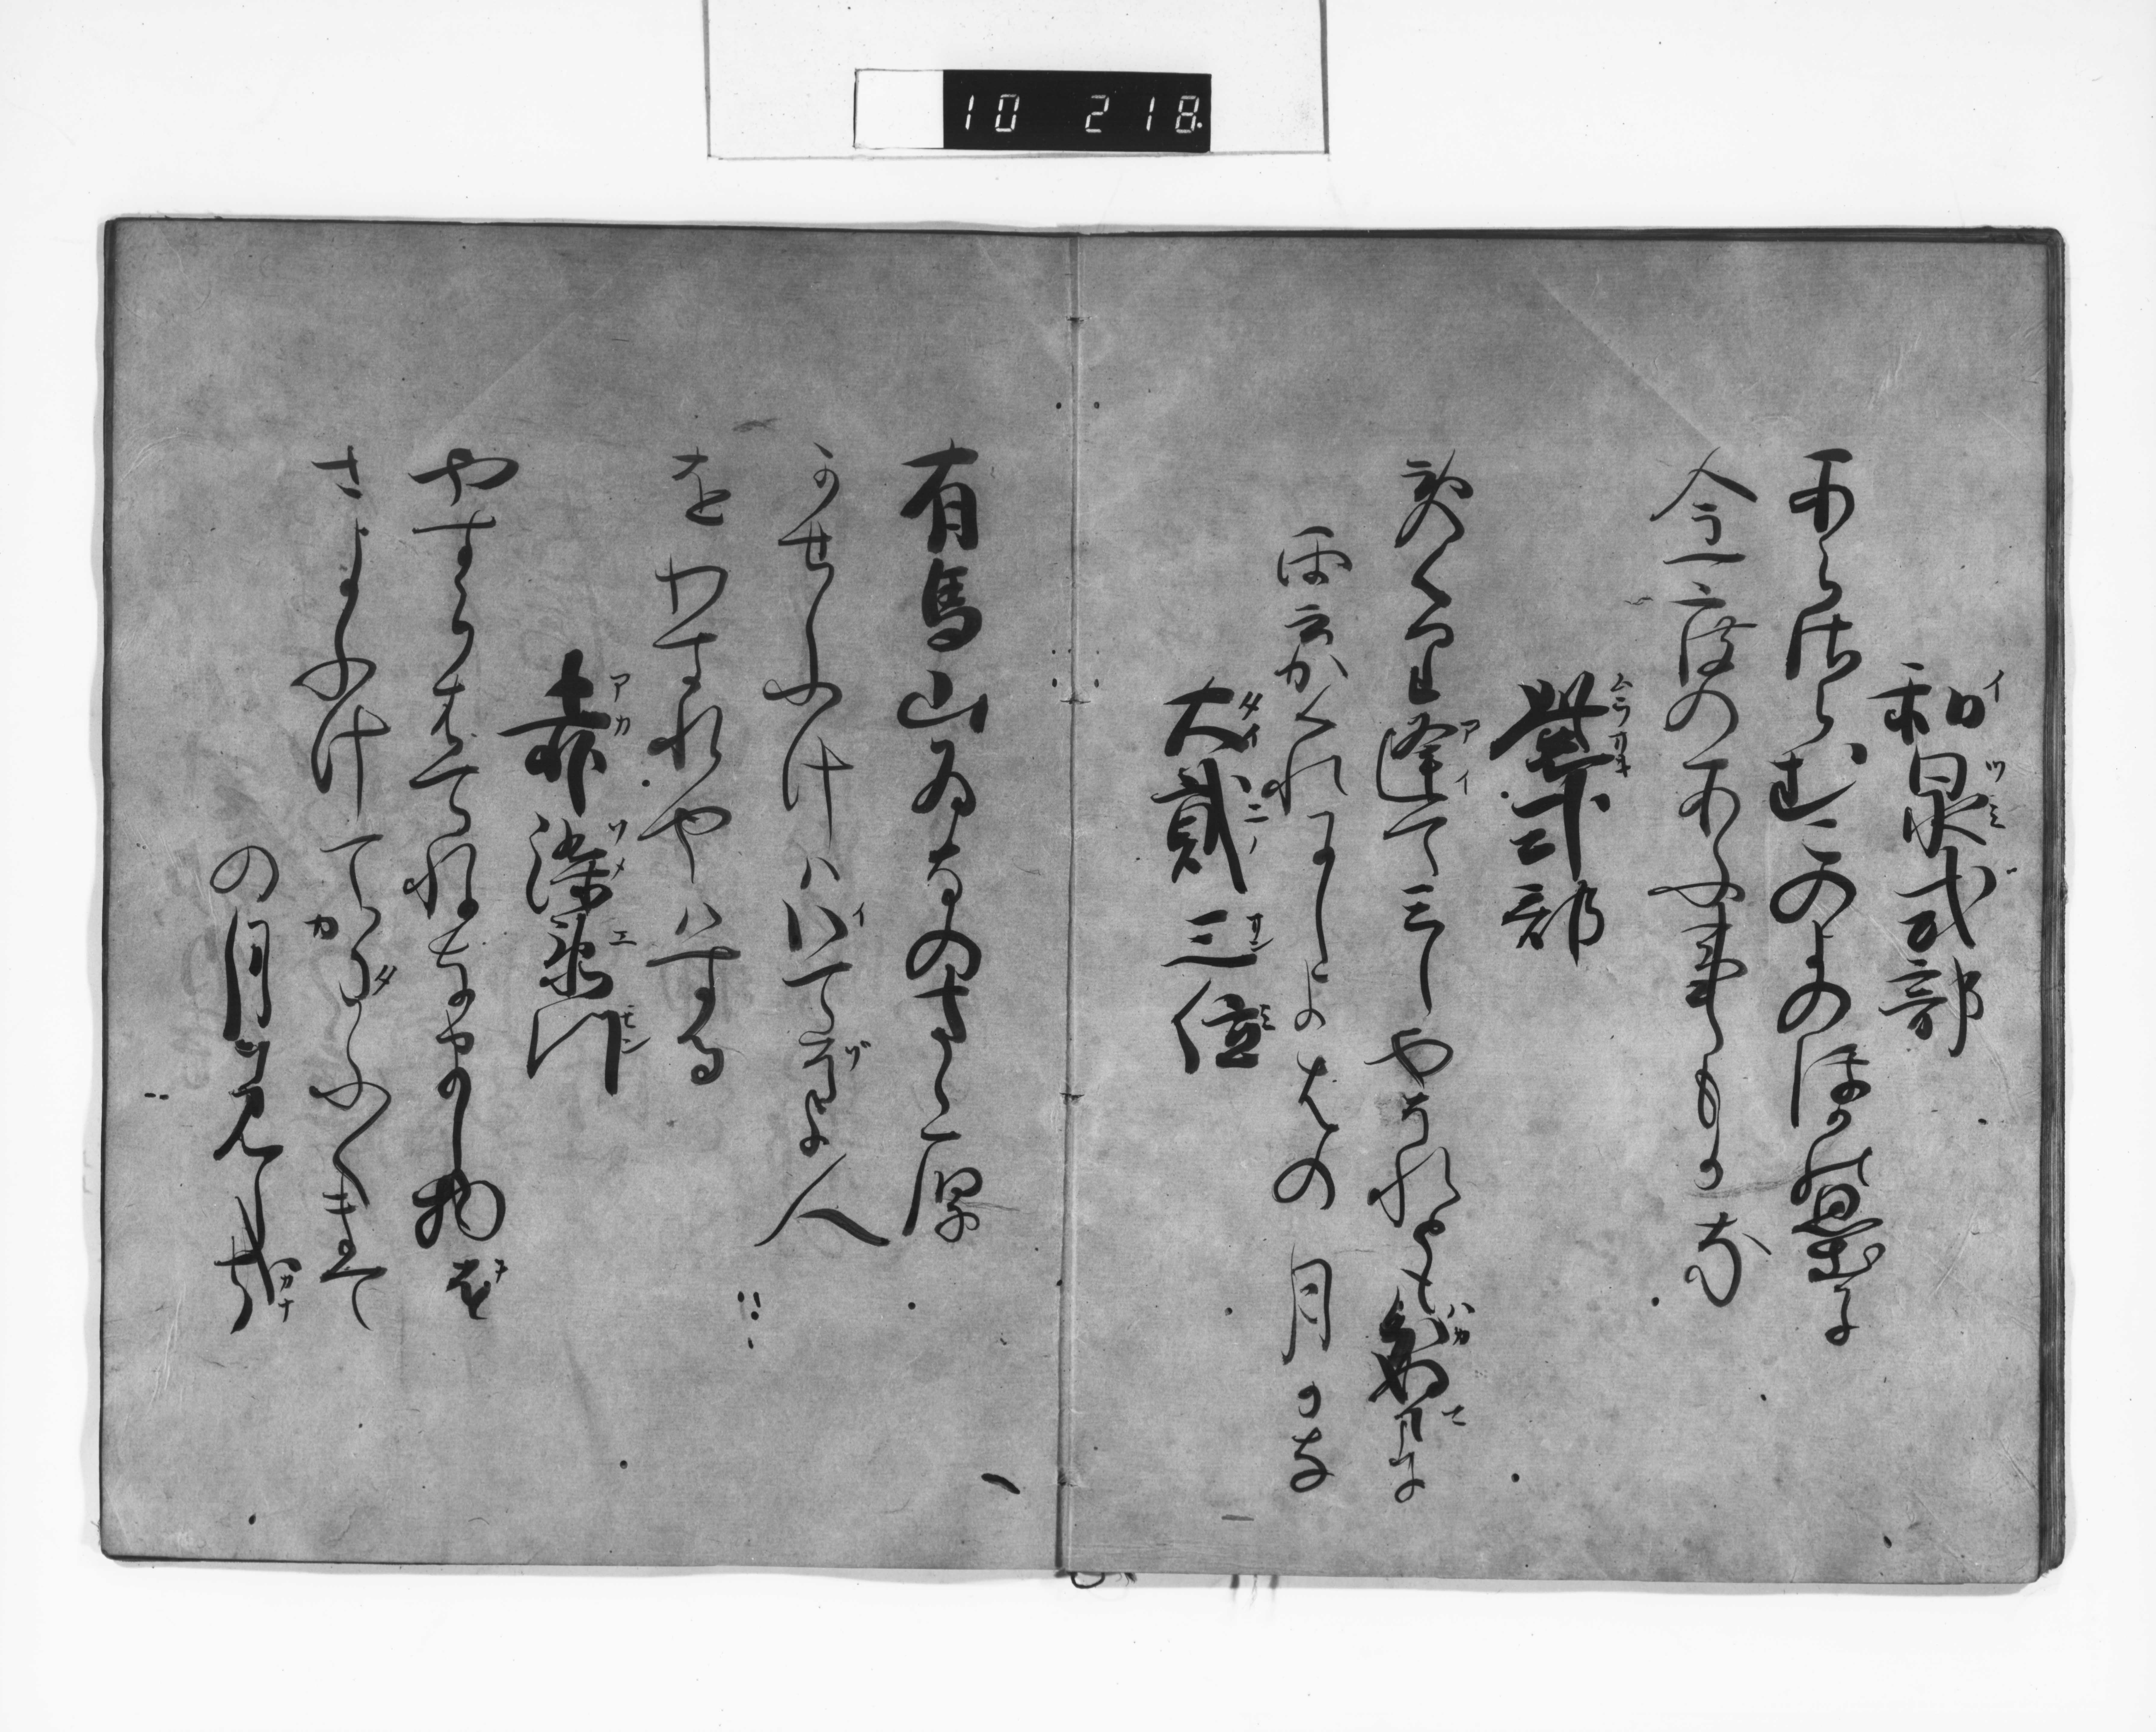 10 218
和泉式部
あらさらむこのよのほかの思出に
今一度のあふ事もかな
紫式部
めくり逢て三しやそれとも分ぬまに
雲かくれにしよはの月かな
大貳三位
有馬山ゐなのさゝ原
かせふけハいてそよ人
をわすれやハする
赤染衛門
やすらはてねなまし物を
さよふけてかたふくまて
の月を見し哉